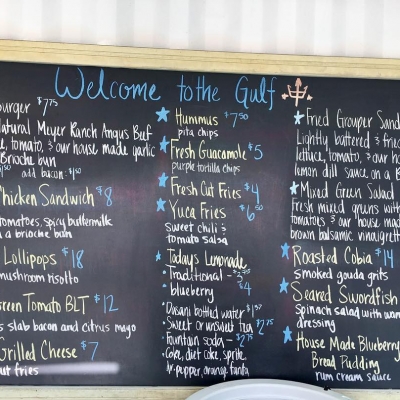 Welcome to the Gulf
burger $7.75
Natural Meyer Ranch Angus Beef
tomato, & our house made garlic
Brioche bun
add bacon: $1.50
Chicken Sandwich $8
tomatoes, spicy buttermilk
a brioche bun
Lollipops $18
mushroom risotto
Green Tomato BLT $12
slab bacon and citrus mayo
Grilled Cheese $7
cut fries
Hummus $7.50
pita chips
Fresh Guacamole $5
purple tortilla chips
Fresh Cut Fries $4
Yuca Fries $6.50
Sweet chili &
tomato salsa
Today's Lemonade
Traditional
blueberry $4
Dasani bottled water $1.50
Sweet or unsweet tea $2.75
Fountain soda - $2.75
Coke, diet coke, sprite
dr. pepper, orange fanta
Fried Grouper Sand
Lightly battered & fried
lettuce, tomato, & our ho
lemon dill sauce, on a B
Mixed Green Salad
Fresh mixed greens with
tomatoes & our house mad
brown balsamic vinaigrett
Roasted Cobia $14
smoked gouda grits
Seared Swordfish
Spinach salad with warm
dressing
House Made Blueberry
Bread Pudding
rum cream sauce